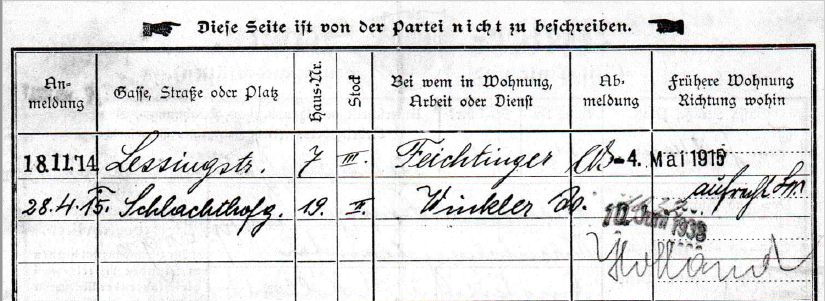 Diese Seite ist von der Partei nicht zu beschreiben.
An-meldung Gasse, Straße oder Platz Haus-Nr. Stock Bei wem in Wohnung, Arbeit oder Dienst Ab-meldung Frühere Wohnung Richtung wohin
18.11.14 Lessingstr. 7 III. Feichtinger -4. Mai 1915
28.4.15. Schlachthofg. 19. II. Winkler aufrecht
10. Juni 1938
Holland